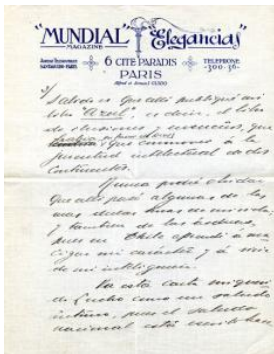 "MUNDIAL" Elegancias
MAGAZINE
6 CITÉ PARADIS
PARIS
TELEPHONE
2/
que allí publiqué mi
libro "Azul", es decir, el libro
de ilusiones y ensueños, que
que conmovió a la
juventud intelectual de dos
continentes.
Nunca podré olvidar
que allí pasé algunas de las
más dulces horas de mi vida,
y también de las
pues en Chile aprendí a
mi carácter y á vivir
de mi inteligencia.
Va esta carta
de como un saludo
íntimo, pues el saludo
nacional está